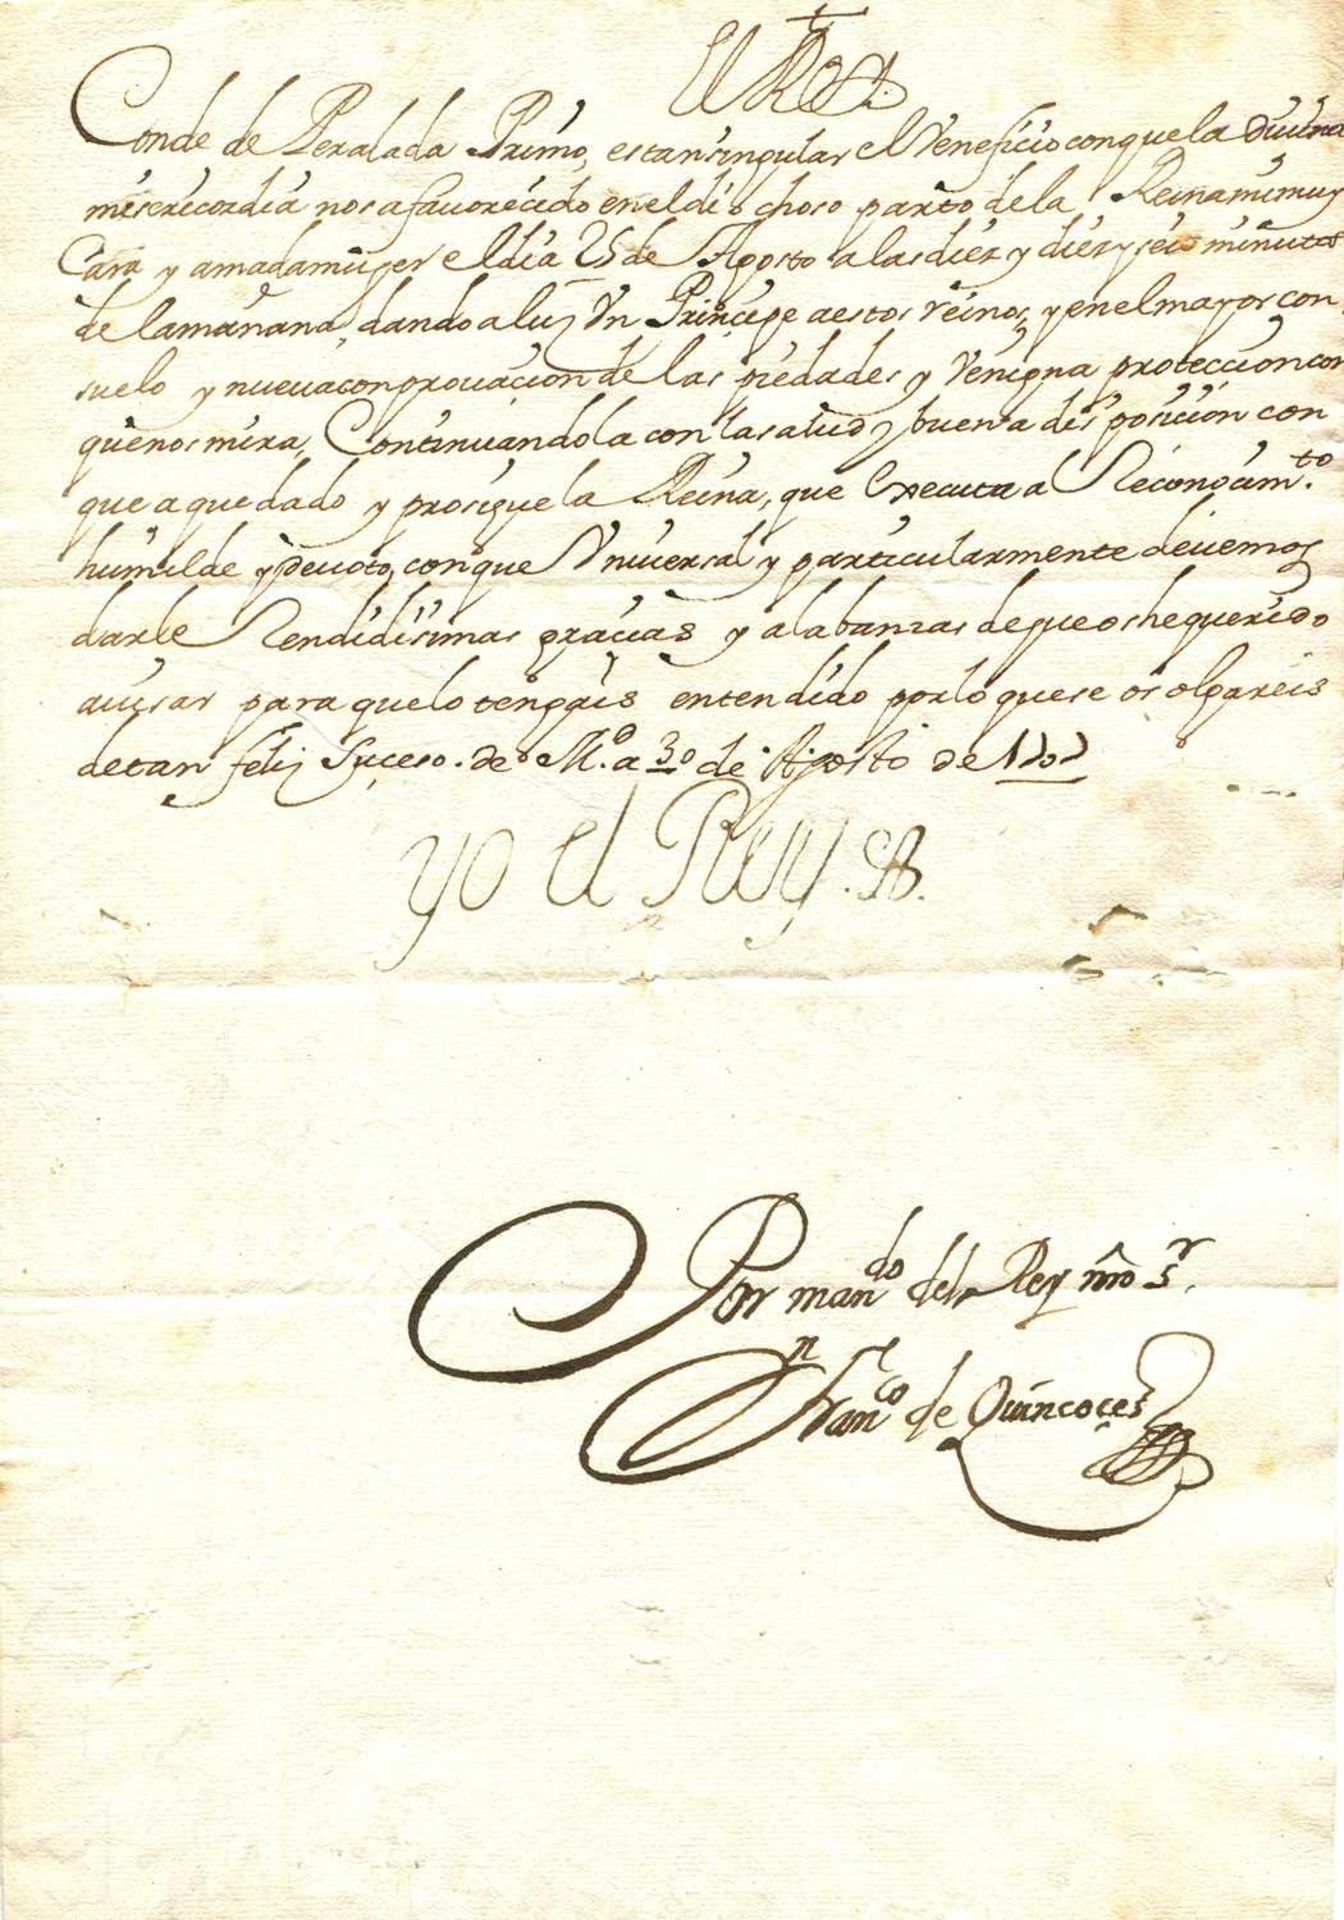 El Rey
Conde de Peralada Primo, es tan singular el Veneficio con que la Diuina
misericordia nos a fauorecido en el dichoso parto de la Reina mi muy
Cara y amada muger el dia 25 de Agosto a las diez y diez y seis minutos
de la mañana, dando a luz Vn Principe a estos reinos, y en el mayor con
suelo y nueua conprouacion de las piedades y Venigna proteccion con
que nos mira, Continuandola con la salud y buena disposicion con
que a quedado y prosigue la Reina, que executa al Reconocim.to
humilde y deuoto, con que Vniuersal y particularmente deuemos
darle Rendidisimas gracias y alabanzas de que os he querido
auisar para que lo tengais entendido por lo que se os olgareis
de tan feliz suçeso. de M.d a 30 de Agosto de 1707
Yo el Rey.
Por man.do del Rey nro S.r
Fran.co de Quincoçes